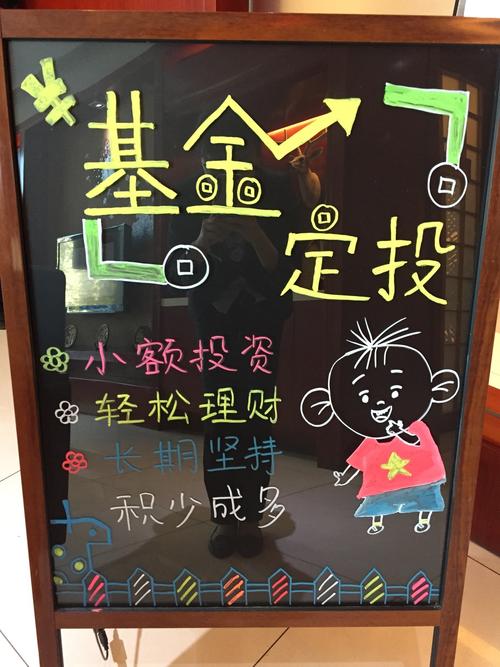 ¥
基金
定投
小额投资
轻松理财
长期坚持
积少成多